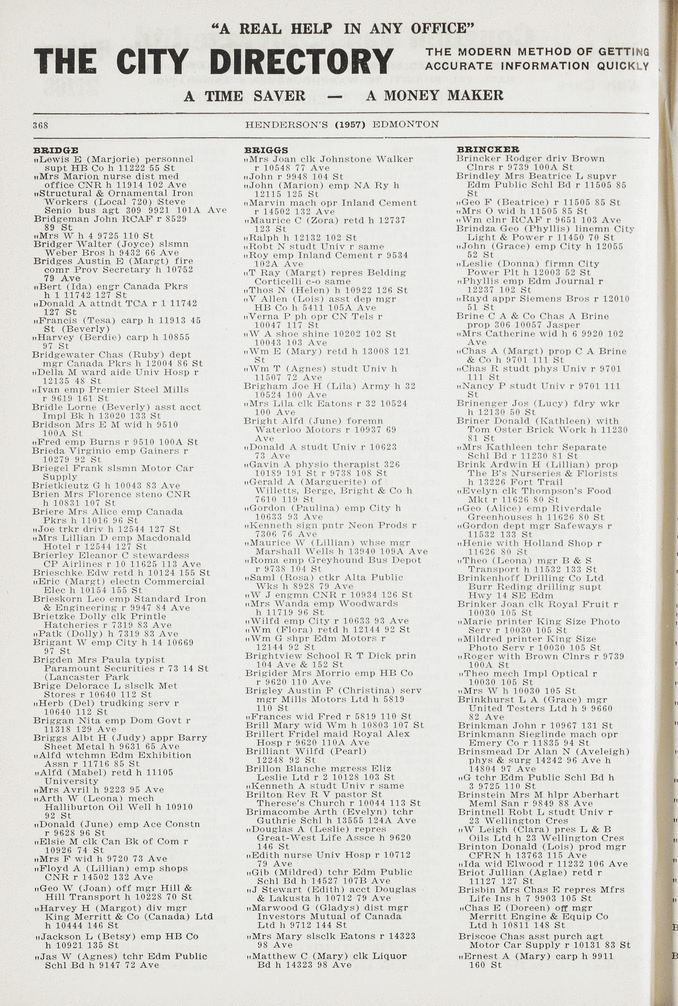 "A REAL HELP IN ANY OFFICE"
THE CITY DIRECTORY
THE MODERN METHOD OF GETTING
ACCURATE INFORMATION QUICKLY
A TIME SAVER — A MONEY MAKER
368
HENDERSON'S (1957) EDMONTON
BRIDGE
"Lewis E (Marjorie) personnel
supt HB Co h 11222 55 St
"Mrs Marion nurse dist med
office CNR h 11914 102 Ave
"Structural & Ornamental Iron
Workers (Local 720) Steve
Senio bus agt 309 9921 101A Ave
Bridgeman John RCAF r 8529
89 St
"Mrs W h 4 9725 110 St
Bridger Walter (Joyce) slsmn
Weber Bros h 9432 66 Ave
Bridges Austin E (Margt) fire
comr Prov Secretary h 10752
79 Ave
"Bert (Ida) engr Canada Pkrs
h 1 11742 127 St
"Donald A attndt TCA r 1 11742
127 St
"Francis (Tesia) carp h 11913 45
St (Beverly)
"Harvey (Berdie) carp h 10855
97 St
Bridgewater Chas (Ruby) dept
mgr Canada Pkrs h 12004 86 St
"Della M ward aide Univ Hosp r
12135 48 St
"Ivan emp Premier Steel Mills
r 9619 161 St
Bridle Lorne (Beverly) asst acct
Impl Bk h 13020 133 St
Bridson Mrs E M wid h 9510
100A St
"Fred emp Burns r 9510 100A St
Brieda Virginio emp Gainers r
10279 92 St
Briegel Frank slsmn Motor Car
Supply
Brietkieutz G h 10043 83 Ave
Brien Mrs Florence steno CNR
h 10831 107 St
Briere Mrs Alice emp Canada
Pkrs h 11016 96 St
"Joe trkr driv h 12544 127 St
"Mrs Lillian D emp Macdonald
Hotel r 12544 127 St
Brierley Eleanor C stewardess
CP Airlines r 10 11625 113 Ave
Brieschke Edw retd h 10124 155 St
"Eric (Margt) electn Commercial
Elec h 10154 155 St
Brieskorn Leo emp Standard Iron
& Engineering r 9947 84 Ave
Brietzke Dolly clk Printle
Hatcheries r 7319 83 Ave
"Patk (Dolly) h 7319 83 Ave
Brigant W emp City h 14 10669
97 St
Brigden Mrs Paula typist
Paramount Securities r 73 14 St
(Lancaster Park
Brige Delorace L slsclk Met
Stores r 10640 112 St
"Herb (Del) trudking serv r
10640 112 St
Briggan Nita emp Dom Govt r
11318 129 Ave
Briggs Albt H (Judy) appr Barry
Sheet Metal h 9631 65 Ave
"Alfd wtchmn Edm Exhibition
Assn r 11716 85 St
"Alfd (Mabel) retd h 11105
University
"Mrs Avril h 9223 95 Ave
"Arth W (Leona) mech
Halliburton Oil Well h 10910
92 St
"Donald (June) emp Ace Constn
r 9628 96 St
"Elsie M clk Can Bk of Com r
10926 74 St
"Mrs F wid h 9720 73 Ave
"Floyd A (Lillian) emp shops
CNR r 14502 132 Ave
"Geo W (Joan) off mgr Hill &
Hill Transport h 10228 70 St
"Harvey H (Margot) div mgr
King Merritt & Co (Canada) Ltd
h 10444 146 St
"Jackson L (Betsy) emp HB Co
h 10921 135 St
"Jas W (Agnes) tchr Edm Public
Schl Bd h 9147 72 Ave
BRIGGS
"Mrs Joan clk Johnstone Walker
r 10548 77 Ave
"John r 9948 104 St
"John (Marion) emp NA Ry h
12115 125 St
"Marvin mach opr Inland Cement
r 14502 132 Ave
"Maurice C (Zora) retd h 12737
123 St
"Ralph h 12132 102 St
"Robt N studt Univ r same
"Roy emp Inland Cement r 9534
102A Ave
"T Ray (Margt) repres Belding
Corticelli c-o same
"Thos N (Helen) h 10922 126 St
"V Allen (Lois) asst dep mgr
HB Co h 5411 105A Ave
"Verna P ph opr CN Tels r
10047 117 St
"W A shoe shine 10202 102 St
10043 103 Ave
"Wm E (Mary) retd h 13008 121
St
"Wm T (Agnes) studt Univ h
11507 72 Ave
Brigham Joe H (Lila) Army h 32
10524 100 Ave
"Mrs Lila clk Eatons r 32 10524
100 Ave
Bright Alfd (June) foremn
Waterloo Motors r 10937 69
Ave
"Donald A studt Univ r 10623
73 Ave
"Gavin A physio therapist 326
10189 191 St r 9738 108 St
"Gerald A (Marguerite) of
Willetts, Berge, Bright & Co h
7610 119 St
"Gordon (Paulina) emp City h
10633 93 Ave
"Kenneth sign pntr Neon Prods r
7306 76 Ave
"Maurice W (Lillian) whse mgr
Marshall Wells h 13940 109A Ave
"Roma emp Greyhound Bus Depot
r 9738 104 St
"Saml (Rosa) ctkr Alta Public
Wks h 8928 79 Ave
"W J engmn CNR r 10934 126 St
"Mrs Wanda emp Woodwards
h 11719 96 St
"Wilfd emp City r 10633 93 Ave
"Wm (Flora) retd h 12144 92 St
"Wm G shpr Edm Motors r
12144 92 St
Brightview School R T Dick prin
104 Ave & 152 St
Brigider Mrs Morrio emp HB Co
r 9620 110 Ave
Brigley Austin F (Christina) serv
mgr Mills Motors Ltd h 5819
110 St
"Frances wid Fred r 5819 110 St
Brill Mary wid Wm h 10803 107 St
Brillert Fridel maid Royal Alex
Hosp r 9620 110A Ave
Brilliant Wilfd (Pearl)
12248 92 St
Brillon Blanche mgress Eliz
Leslie Ltd r 2 10128 103 St
"Kenneth A studt Univ r same
Brilton Rev R V pastor St
Therese's Church r 10044 113 St
Brimacombe Arth (Evelyn) tchr
Guthrie Schl h 13555 124A Ave
"Douglas A (Leslie) repres
Great-West Life Assce h 9620
146 St
"Edith nurse Univ Hosp r 10712
79 Ave
"Gib (Mildred) tchr Edm Public
Schl Bd h 14527 107B Ave
"J Stewart (Edith) acct Douglas
& Lakusta h 10712 79 Ave
"Marwood G (Gladys) dist mgr
Investors Mutual of Canada
Ltd h 9712 144 St
"Mrs Mary slsclk Eatons r 14323
98 Ave
"Matthew C (Mary) clk Liquor
Bd h 14323 98 Ave
BRINCKER
Brincker Rodger driv Brown
Clnrs r 9739 100A St
Brindley Mrs Beatrice L supvr
Edm Public Schl Bd r 11505 85
St
"Geo F (Beatrice) r 11505 85 St
"Mrs O wid h 11505 85 St
"Wm clnr RCAF r 9651 103 Ave
Brindza Geo (Phyllis) linemn City
Light & Power r 11450 70 St
"John (Grace) emp City h 12055
52 St
"Leslie (Donna) firmn City
Power Plt h 12003 52 St
"Phyllis emp Edm Journal r
12237 102 St
"Rayd appr Siemens Bros r 12010
51 St
Brine C A & Co Chas A Brine
prop 306 10057 Jasper
"Mrs Catherine wid h 6 9920 102
Ave
"Chas A (Margt) prop C A Brine
& Co h 9701 111 St
"Chas R studt phys Univ r 9701
111 St
"Nancy P studt Univ r 9701 111
St
Brinenger Jos (Lucy) fdry wkr
h 12130 50 St
Briner Donald (Kathleen) with
Tom Oster Brick Work h 11230
81 St
"Mrs Kathleen tchr Separate
Schl Bd r 11230 81 St
Brink Ardwin H (Lillian) prop
The B's Nurseries & Florists
h 13226 Fort Trail
"Evelyn clk Thompson's Food
Mkt r 11626 80 St
"Geo (Alice) emp Riverdale
Greenhouses h 11626 80 St
"Gordon dept mgr Safeways r
11532 133 St
"Henie with Holland Shop r
11626 80 St
"Theo (Leona) mgr B & S
Transport h 11532 133 St
Brinkenhoff Drilling Co Ltd
Burr Reding drilling supt
Hwy 14 SE Edm
Brinker Joan clk Royal Fruit r
10030 105 St
"Marie printer King Size Photo
Serv r 10030 105 St
"Mildred printer King Size
Photo Serv r 10030 105 St
"Roger with Brown Clnrs r 9739
100A St
"Theo mech Impl Optical r
10030 105 St
"Mrs W h 10030 105 St
Brinkhurst L A (Grace) mgr
United Testers Ltd h 9 9660
82 Ave
Brinkman John r 10967 131 St
Brinkmann Sieglinde mach opr
Emery Co r 11835 94 St
Brinsmead Dr Alan N (Aveleigh)
phys & surg 14242 96 Ave h
14804 97 Ave
"G tchr Edm Public Schl Bd h
3 9725 110 St
Brinstein Mrs M hlpr Aberhart
Meml San r 9849 88 Ave
Brintnell Robt L studt Univ r
23 Wellington Cres
"W Leigh (Clara) pres L & B
Oils Ltd h 23 Wellington Cres
Brinton Donald (Lois) prod mgr
CFRN h 13763 115 Ave
"Ida wid Elwood r 11232 106 Ave
Briot Jullian (Aglae) retd r
11127 127 St
Brisbin Mrs Chas E repres Mfrs
Life Ins h 7 9903 105 St
"Chas E (Doreen) off mgr
Merritt Engine & Equip Co
Ltd h 10811 148 St
Briscoe Chas asst purch agt
Motor Car Supply r 10131 83 St
"Ernest A (Mary) carp h 9911
160 St